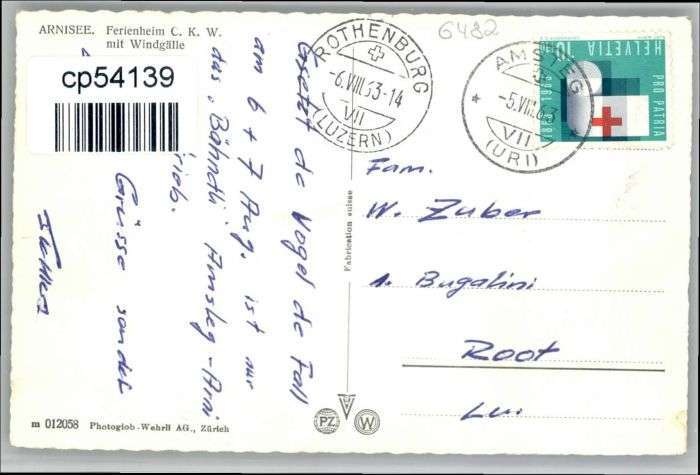 ARNISEE. Ferienheim C. K. W.
mit Windgälle
cp54139
6482
ROTHENBURG
-6.VIII.63-14
VII
(LUZERN)
AMSTEG
-5.VIII.63
VII
(URI)
HELVETIA 10
PRO PATRIA
1863 1963
Gsetzt de Vogel de Fall
am 6 + 7 Aug. ist nur
das "Bähndli Amsteg-Arni
trieb.
Grüsse sendet
Fabrication suisse
Fam.
W. Zuber
Bugalini
Root
Luz.
m 012058 Photoglob-Wehrli AG., Zürich
PZ W